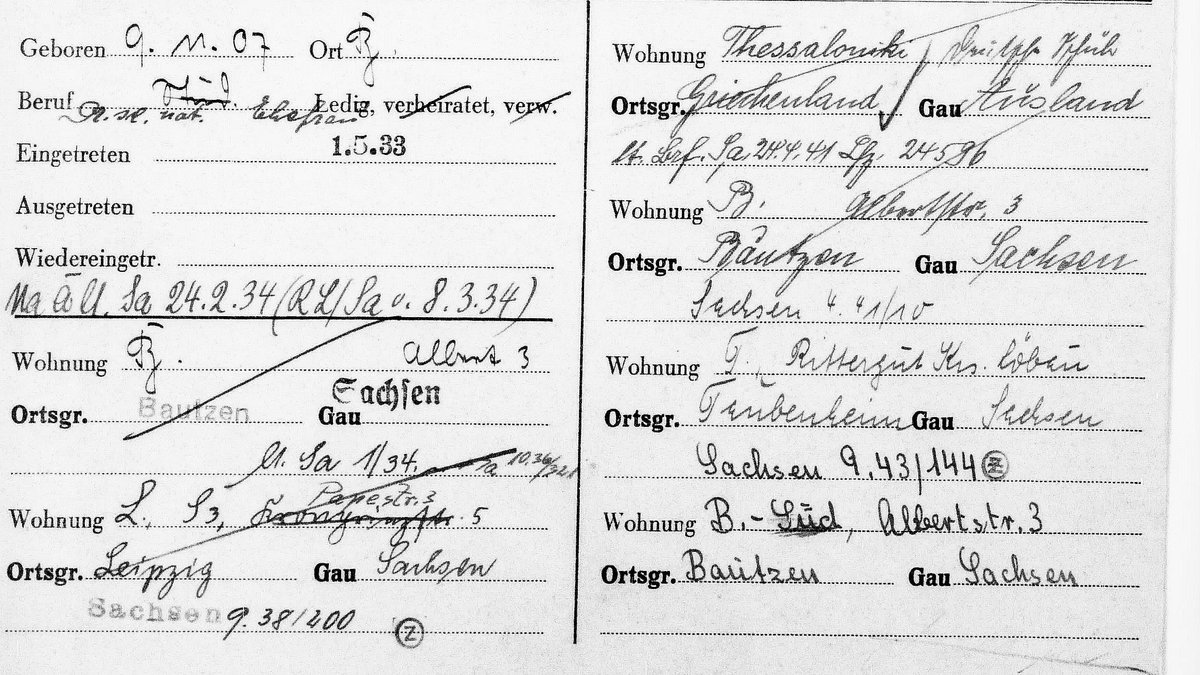 Geboren 9. 11. 07 Ort B.
Beruf Stud.
Dr. sc. nat. Ehefrau Ledig, verheiratet, verw.
Eingetreten 1.5.33
Ausgetreten
Wiedereingetr.
Sa 24.2.34 (RL/Sa v. 8.3.34)
Wohnung B. Albert 3
Ortsgr. Bautzen Gau Sachsen
Sa 1/34. 10.36/321
Papestr. 3
Wohnung L. S3, 5
Ortsgr. Leipzig Gau Sachsen
Sachsen 9.38/200 Z
Wohnung Thessaloniki
Ortsgr. Griechenland Gau Ausland
lt. Brf. Sa. 24.4.41 Lfz. 24596
Wohnung B. Albertstr. 3
Ortsgr. Bautzen Gau Sachsen
Sachsen 4.41/10
Wohnung T. Rittergut Krs. Löbau
Ortsgr. Taubenheim Gau Sachsen
Sachsen 9.43/144 Z
Wohnung B.-Süd, Albertstr. 3
Ortsgr. Bautzen Gau Sachsen